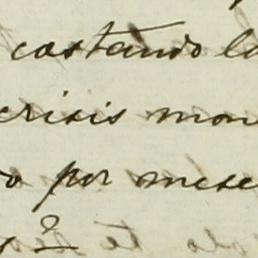 costando la
crisis mon
o por mese